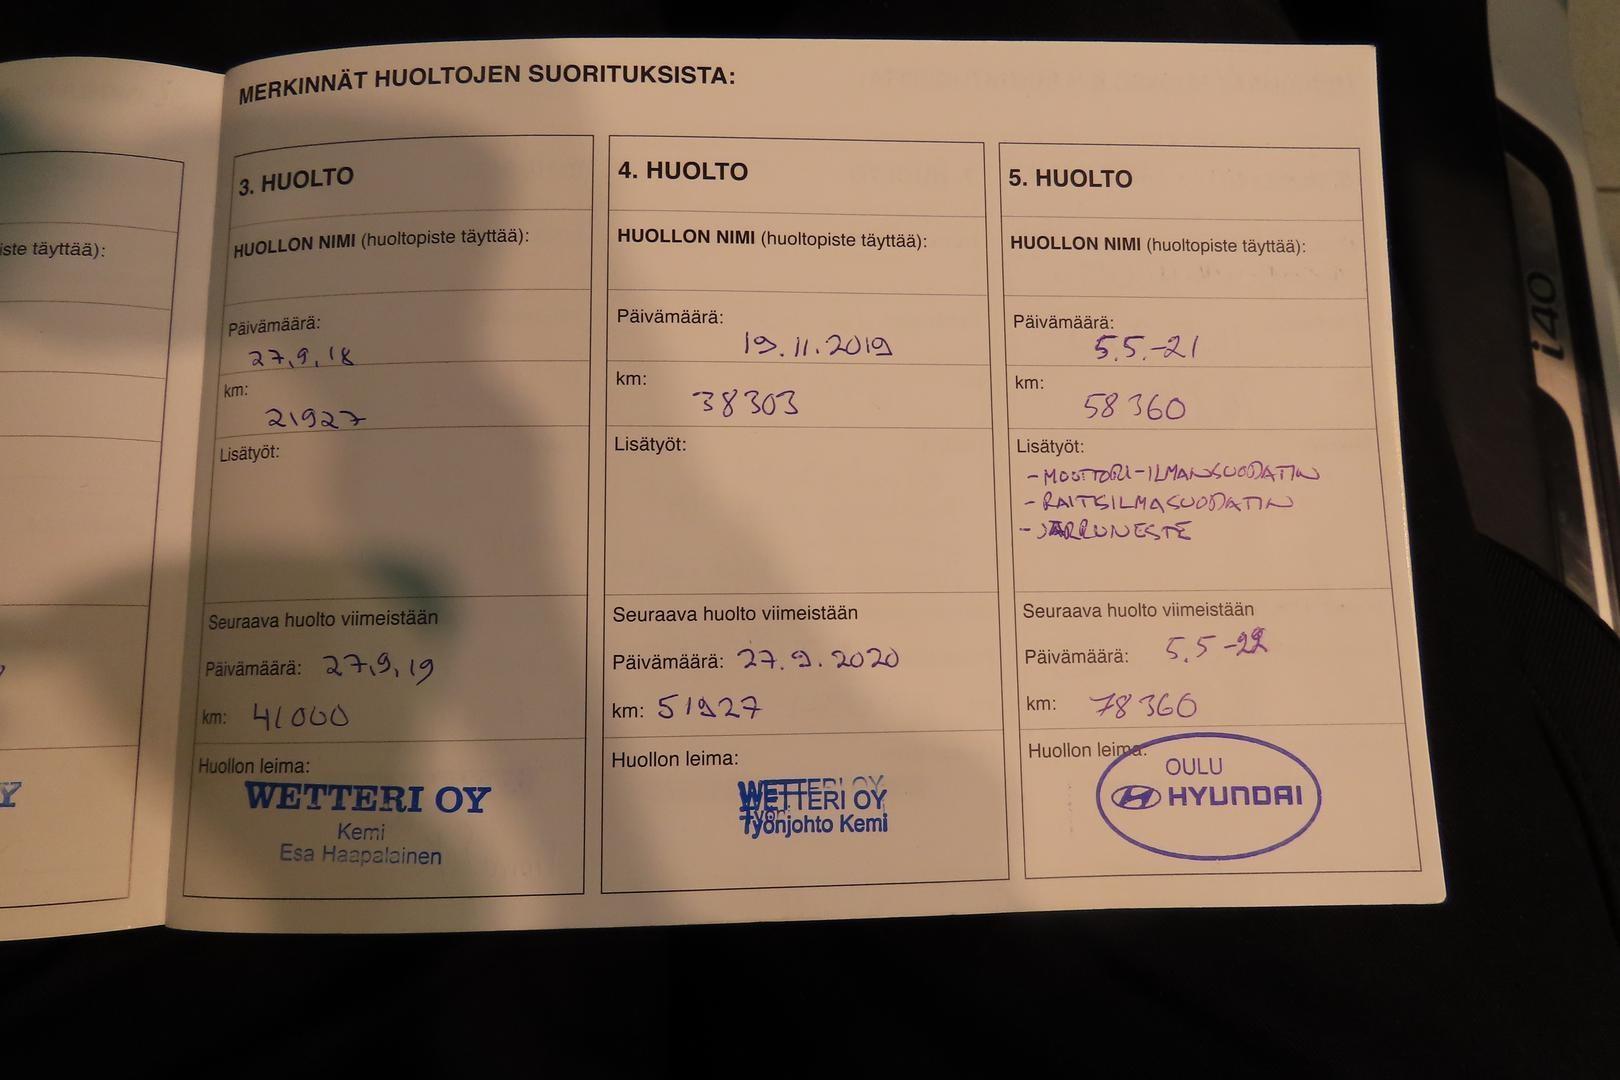 MERKINNÄT HUOLTOJEN SUORITUKSISTA:
iste täyttää):
Y
3. HUOLTO
HUOLLON NIMI (huoltopiste täyttää):
Päivämäärä:
27,9,18
km:
21927
Lisätyöt:
Seuraava huolto viimeistään
Päivämäärä: 27,9,19
km: 41000
Huollon leima:
WETTERI OY
Kemi
Esa Haapalainen
4. HUOLTO
HUOLLON NIMI (huoltopiste täyttää):
Päivämäärä:
19.11.2019
km:
38303
Lisätyöt:
Seuraava huolto viimeistään
Päivämäärä: 27.9.2020
km: 51927
Huollon leima:
WETTERI OY
Työnjohto Kemi
5. HUOLTO
HUOLLON NIMI (huoltopiste täyttää):
Päivämäärä:
5.5.-21
km:
58360
Lisätyöt:
-MOOTTORI-ILMANSUODATIN
-RAITISILMASUODATIN
-JARRUNESTE
Seuraava huolto viimeistään
Päivämäärä: 5.5-22
km: 78360
Huollon leima:
OULU
HYUNDAI
i40